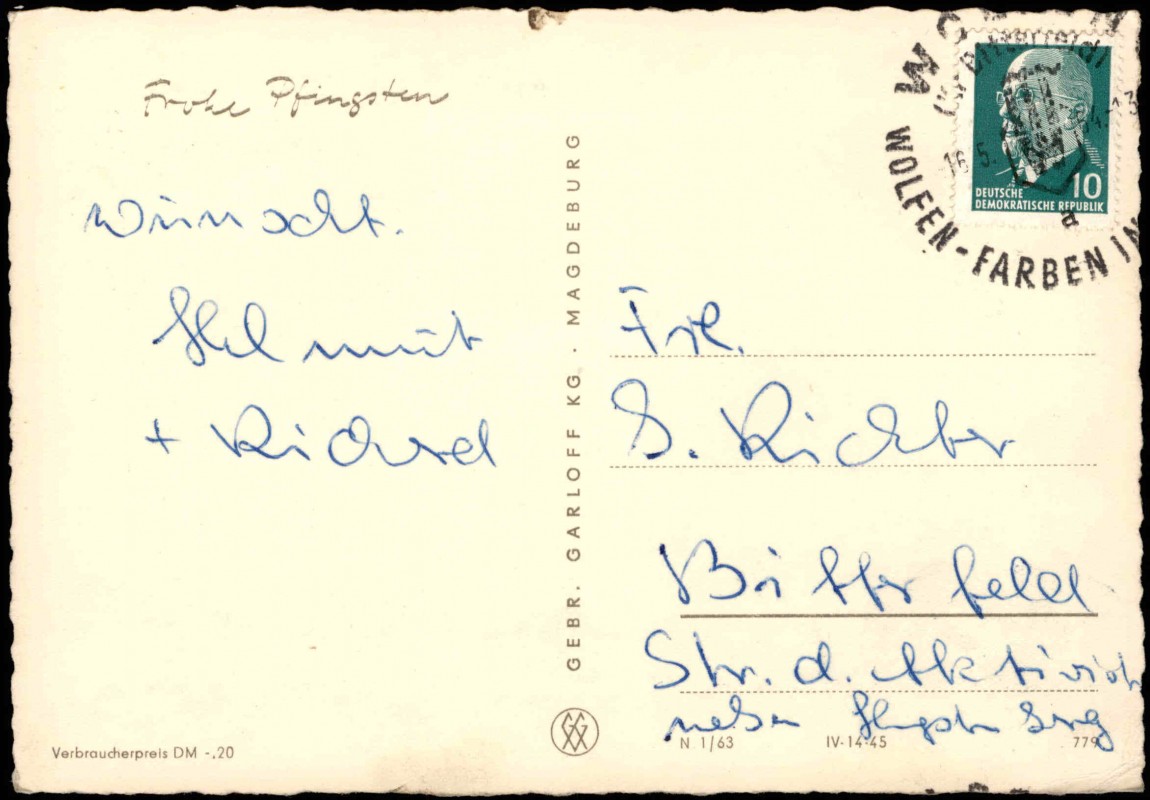 Frohe Pfingsten
wünscht.
Helmut
+ Richard
GEBR. GARLOFF KG. · MAGDEBURG
WOLFEN
16.5.64.
WOLFEN-FARBEN IN
DEUTSCHE
DEMOKRATISCHE REPUBLIK
10
Frl.
S. Richter
Bitterfeld
Str. d. Aktivist
neben
Verbraucherpreis DM -,20
N 1/63
IV-14-45
779